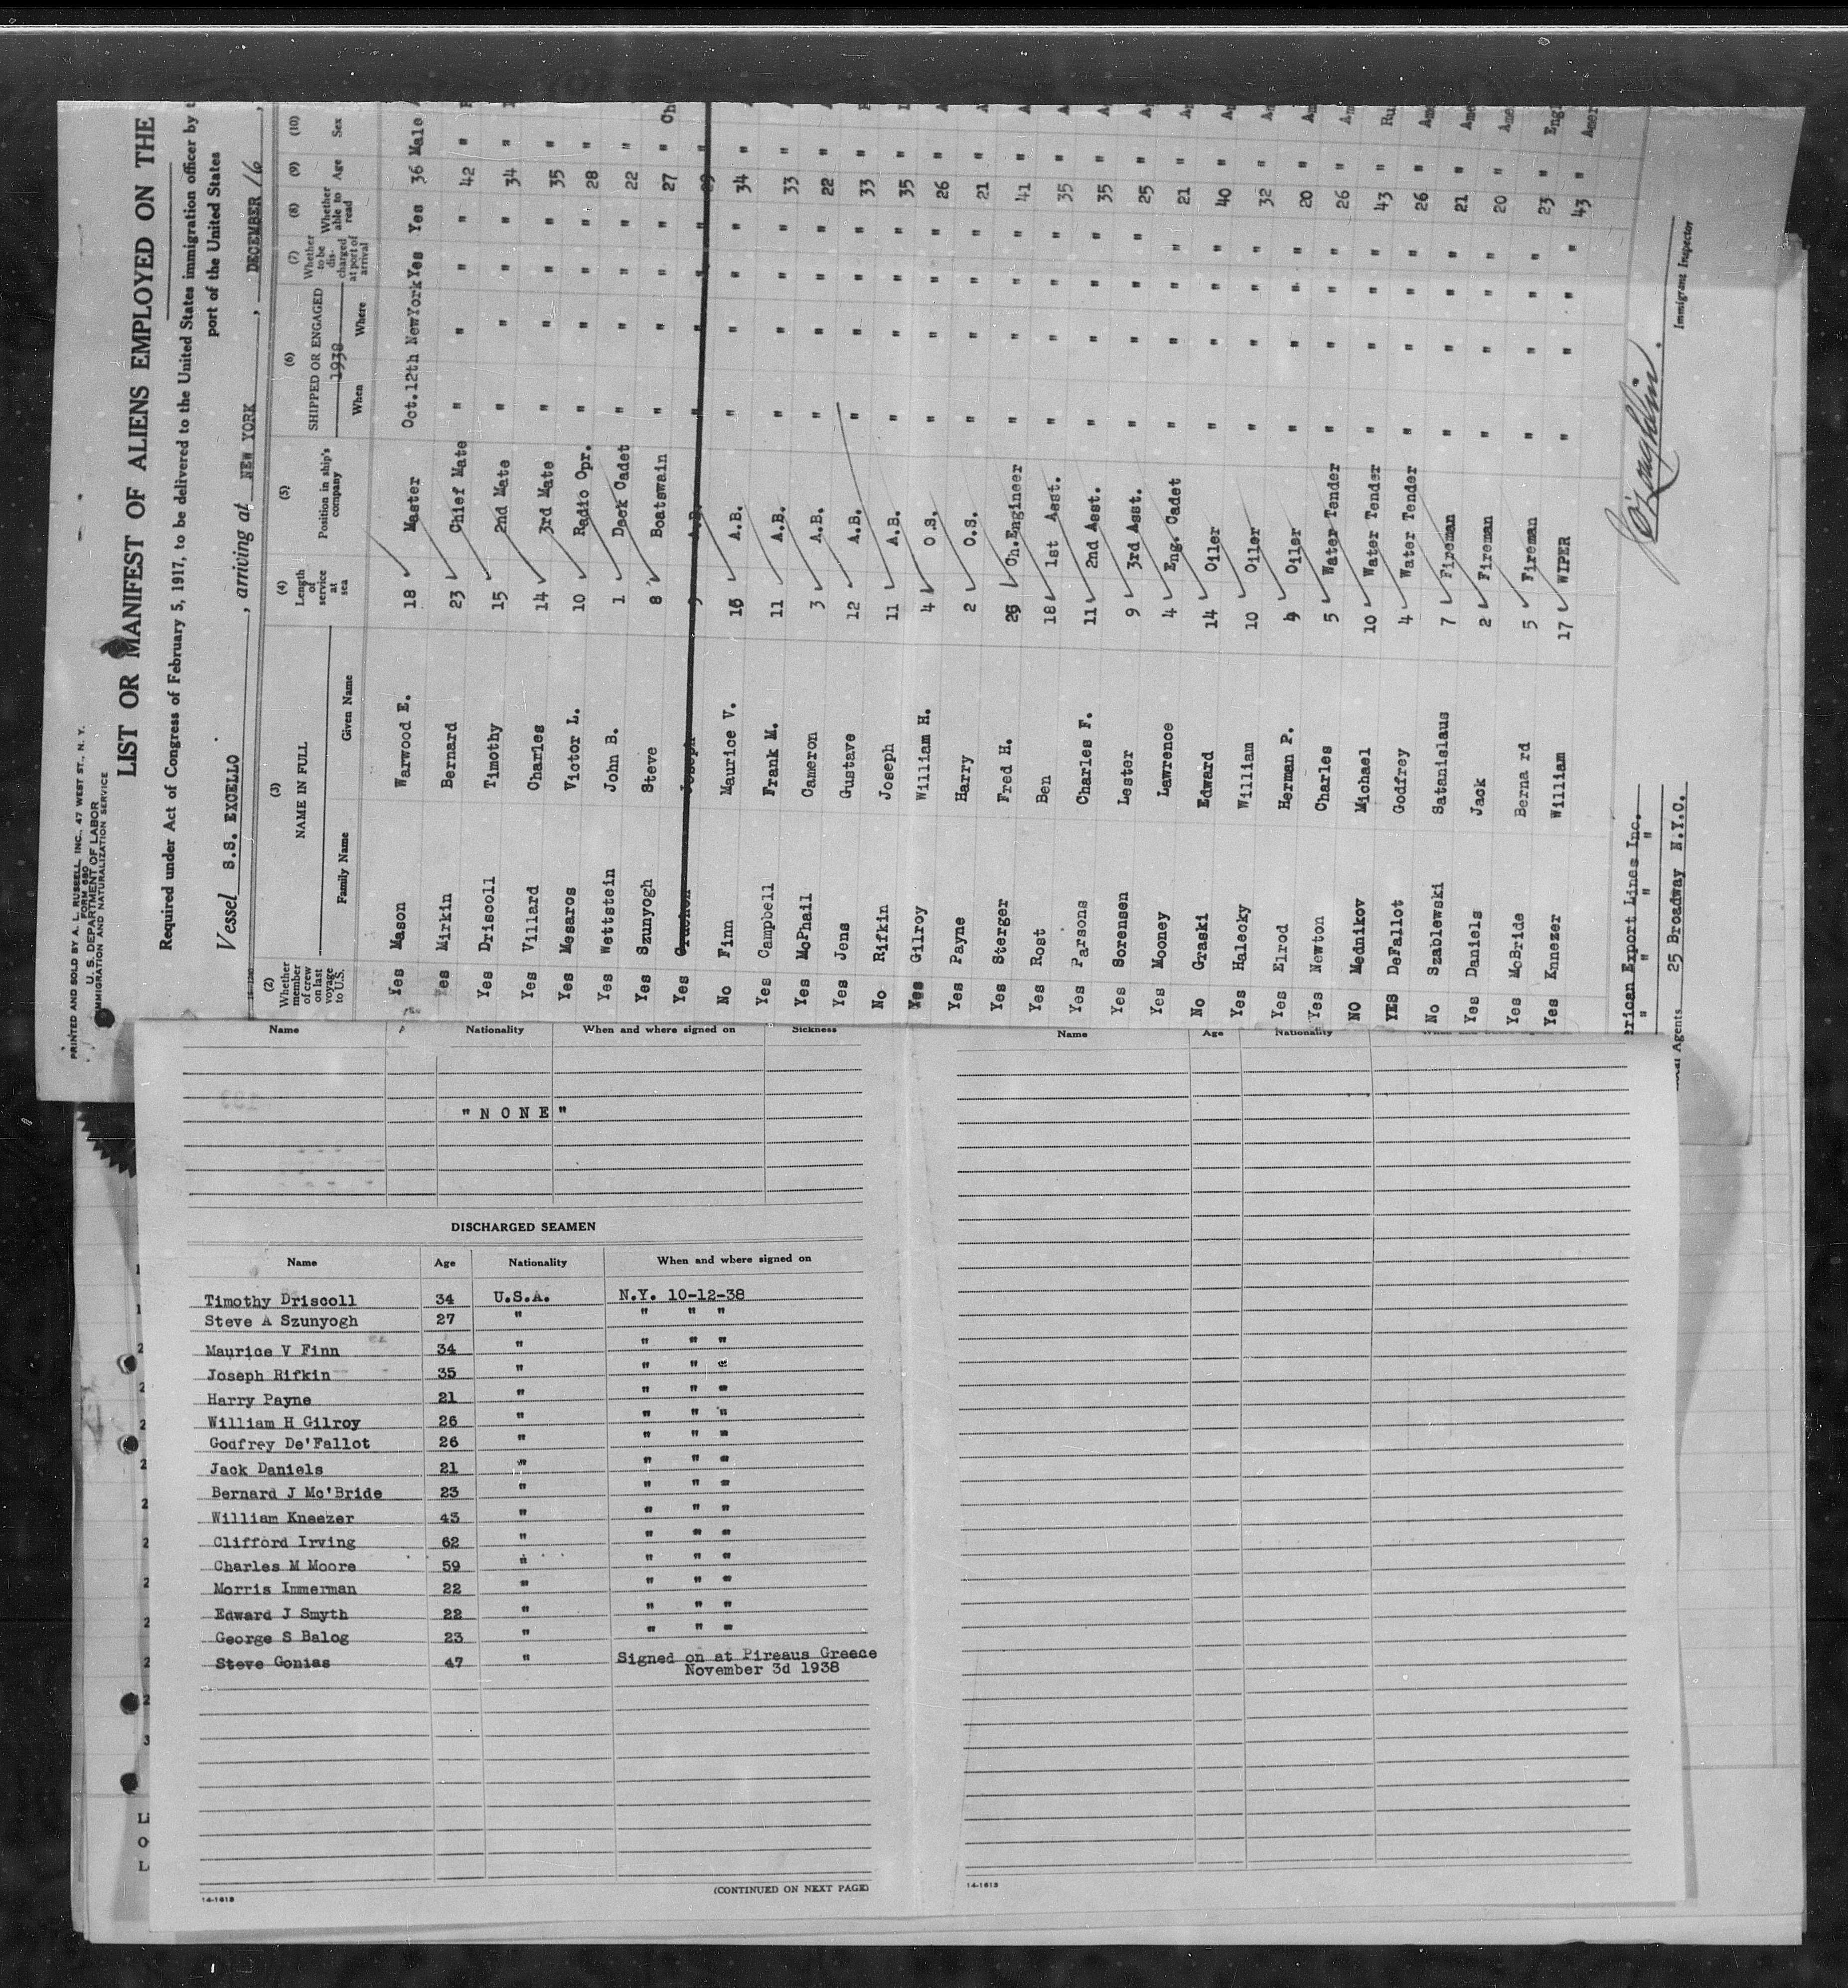 PRINTED AND SOLD BY A. L. RUSSELL, INC., 47 WEST ST., N. Y.
FORM 680
U. S. DEPARTMENT OF LABOR
IMMIGRATION AND NATURALIZATION SERVICE
LIST OR MANIFEST OF ALIENS EMPLOYED ON THE
Required under Act of Congress of February 5, 1917, to be delivered to the United States immigration officer by t
port of the United States
Vessel S.S. EXCELLO, arriving at NEW YORK, DECEMBER 16,
(2) (3) (4) (5) (6) (7) (8) (9) (10)
Whether member of crew on last voyage to U.S. NAME IN FULL Length of service at sea Position in ship's company SHIPPED OR ENGAGED Whether to be discharged at port of arrival Whether able to read Age Sex
Family Name Given Name When 1938 Where
Yes Mason Warwood E. 18 Master Oct.12th NewYork Yes Yes 36 Male
Yes Mirkin Bernard 23 Chief Mate " " " " 42 "
Yes Driscoll Timothy 15 2nd Mate " " " " 34 "
Yes Villard Charles 14 3rd Mate " " " " 35 "
Yes Mesaros Victor L. 10 Radio Opr. " " " " 28 "
Yes Wettstein John B. 1 Deck Cadet " " " " 22 "
Yes Szunyogh Steve 8 Boatswain " " " " 27 " Ch
Yes Joseph A.B. " " " " 29 "
No Finn Maurice V. 16 A.B. " " " " 34 "
Yes Campbell Frank M. 11 A.B. " " " " 33 "
Yes McPhail Cameron 3 A.B. " " " " 22 "
Yes Jens Gustave 12 A.B. " " " " 33 "
No Rifkin Joseph 11 A.B. " " " " 35 "
Yes Gilroy William H. 4 O.S. " " " " 26 " A
Yes Payne Harry 2 O.S. " " " " 21 " A
Yes Sterger Fred H. 25 Ch.Engineer " " " " 41 " A
Yes Rost Ben 18 1st Asst. " " " " 35 " A
Yes Parsons Charles F. 11 2nd Asst. " " " " 35 " A
Yes Sorensen Lester 9 3rd Asst. " " " " 25 " A
Yes Mooney Lawrence 4 Eng. Cadet " " " " 21 " Am
No Graski Edward 14 Oiler " " " " 40 " Am
Yes Halecky William 10 Oiler " " " " 32 " Am
Yes Elrod Herman P. 9 Oiler " " " " 20 " Am
Yes Newton Charles 5 Water Tender " " " " 26 " Am
NO Mednikov Michael 10 Water Tender " " " " 43 " Ru
YES DeFallot Godfrey 4 Water Tender " " " " 26 " Ame
No Szablewski Satanislaus 7 Fireman " " " " 21 " Ame
Yes Daniels Jack 2 Fireman " " " " 20 " Ame
Yes McBride Berna rd 5 Fireman " " " " 23 " Engl
Yes Knnezer William 17 WIPER " " " " 43 " Amer
erican Export Lines Inc.
" " " "
Agents 25 Broadway N.Y.C.
Immigrant Inspector
Name Nationality When and where signed on Sickness
"NONE"
DISCHARGED SEAMEN
Name Age Nationality When and where signed on
Timothy Driscoll 34 U.S.A. N.Y. 10-12-38
Steve A Szunyogh 27 " " " "
Maurice V Finn 34 " " " "
Joseph Rifkin 35 " " " "
Harry Payne 21 " " " "
William H Gilroy 26 " " " "
Godfrey De'Fallot 26 " " " "
Jack Daniels 21 " " " "
Bernard J Mc'Bride 23 " " " "
William Kneezer 43 " " " "
Clifford Irving 62 " " " "
Charles M Moore 59 " " " "
Morris Immerman 22 " " " "
Edward J Smyth 22 " " " "
George S Balog 23 " " " "
Steve Gonias 47 " Signed on at Pireaus Greece
November 3d 1938
14-1613
(CONTINUED ON NEXT PAGE)
Name Age Nationality
14-1613